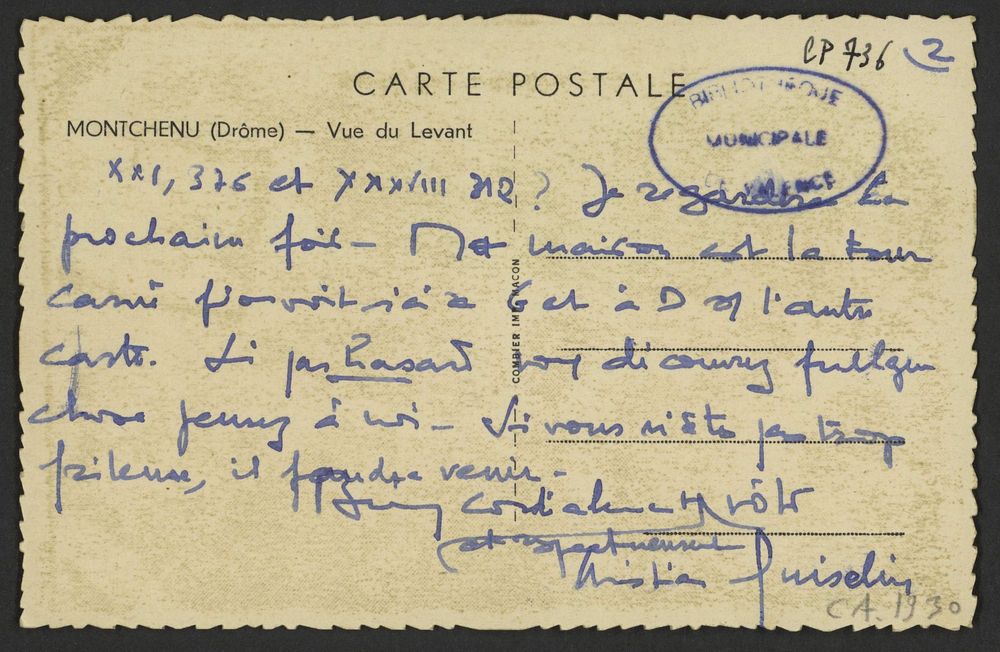 CP 736 2
CARTE POSTALE
BIBLIOTHÈQUE
MUNICIPALE
DE VALENCE
MONTCHENU (Drôme) — Vue du Levant
XXI, 376 et XXXVIII 212 ? Je regarderai la
prochaine fois — Ma maison est la tour
carrée qu'on voit ici à G et à D l'autre
carte. Si par hasard vous découvrez quelque
chose pensez à moi — Si vous n'êtes pas trop
frileuse, il faudra venir —
cordialement vôtre
et respectueusement
Christian
COMBIER IMP. MACON
CA. 1930